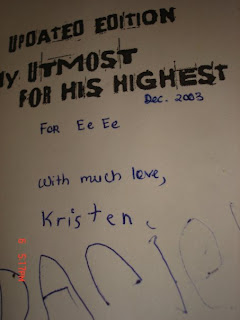 UPDATED EDITION
My UTMOST
FOR HIS HIGHEST
Dec. 2003
FOR Ee Ee
with much love,
Kristen